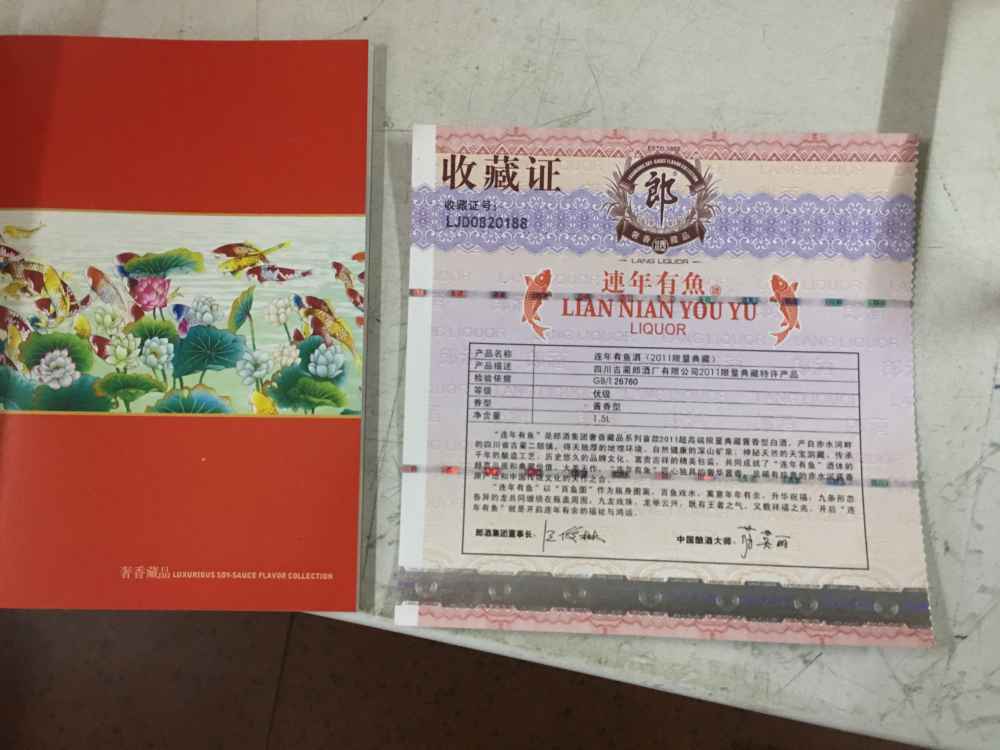 奢香藏品 LUXURIOUS SOY-SAUCE FLAVOR COLLECTION
收藏证
收藏证号:
LJD0820188
ESTD.1898
郎
奢香藏品
LANG LIQUOR
連年有魚酒
LIAN NIAN YOU YU
LIQUOR
产品名称 连年有鱼酒(2011限量典藏)
产品描述 四川古蔺郎酒厂有限公司2011限量典藏特许产品
检验依据 GB/T26760
等级 优级
香型 酱香型
净含量 1.5L
“连年有鱼”是郎酒集团奢香藏品系列首款2011超高端限量典藏酱香型白酒,产自赤水河畔
的四川省古蔺二郎镇,得天独厚的地理环境,自然健康的深山矿泉,神秘天然的天宝洞藏,传承
千年的酿造工艺,历史悠久的品牌文化,富贵吉祥的精美包装,共同成就了“连年有鱼”酒体的
原产地和中国传统文化的天作之合。
“连年有鱼”以“百鱼图”作为瓶身图案,百鱼戏水,寓意年年有余,升华祝福,九条形态
各异的龙共同缠绕在瓶盖周围,九龙戏珠,龙举云兴,既有王者之气,又载祥福之兆,开启“连
年有鱼”就是开启连年有余的福祉与鸿运。
郎酒集团董事长: 中国酿酒大师: